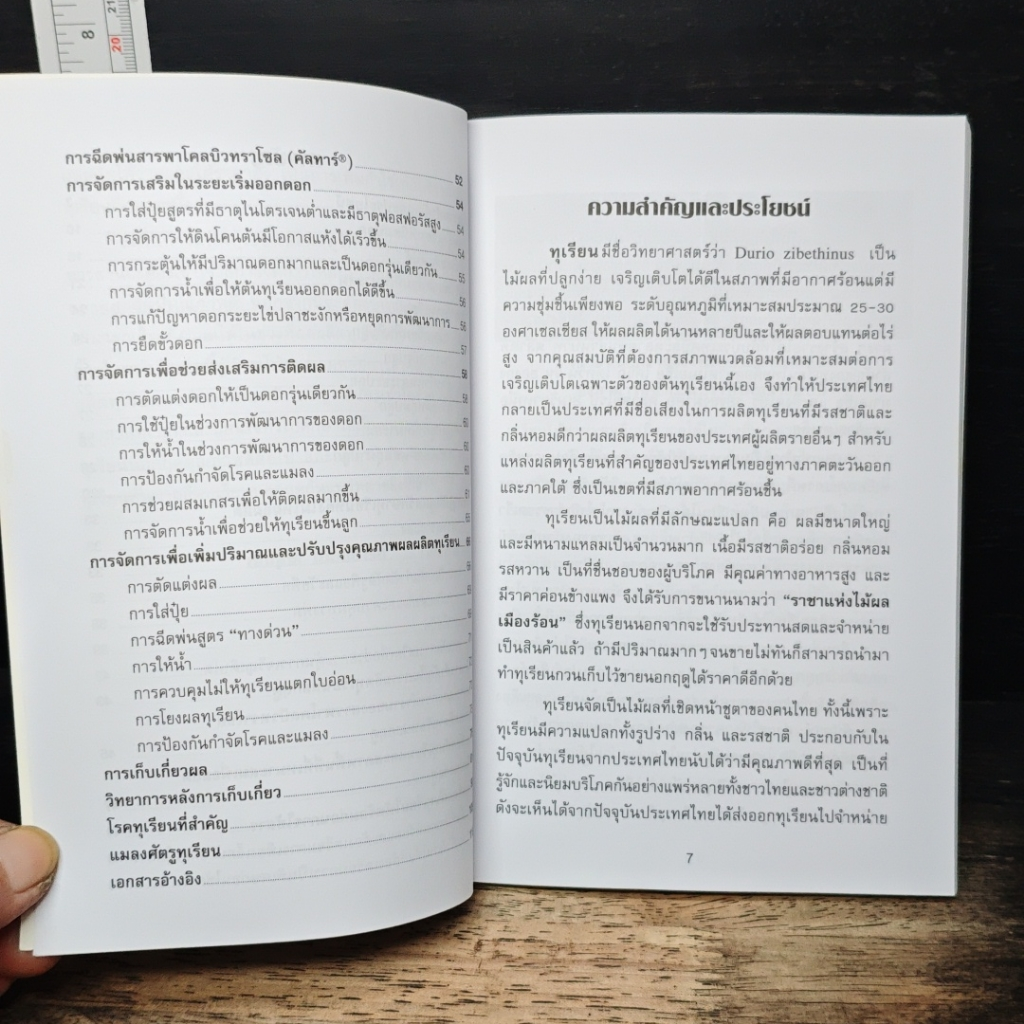 8
21
20
การฉีดพ่นสารพาโคลบิวทราโซล (คัลทาร์®) 52
การจัดการเสริมในระยะเริ่มออกดอก 54
การใส่ปุ๋ยสูตรที่มีธาตุไนโตรเจนต่ำและมีธาตุฟอสฟอรัสสูง 54
การจัดการให้ดินโคนต้นมีโอกาสแห้งได้เร็วขึ้น 54
การกระตุ้นให้มีปริมาณดอกมากและเป็นดอกรุ่นเดียวกัน 55
การจัดการน้ำเพื่อให้ต้นทุเรียนออกดอกได้ดีขึ้น 56
การแก้ปัญหาดอกระยะไข่ปลาชะงักหรือหยุดการพัฒนาการ 56
การยืดขั้วดอก 57
การจัดการเพื่อช่วยส่งเสริมการติดผล 58
การตัดแต่งดอกให้เป็นดอกรุ่นเดียวกัน 58
การใช้ปุ๋ยในช่วงการพัฒนาการของดอก 60
การให้น้ำในช่วงการพัฒนาการของดอก 60
การป้องกันกำจัดโรคและแมลง 60
การช่วยผสมเกสรเพื่อให้ติดผลมากขึ้น
การจัดการน้ำเพื่อช่วยให้ทุเรียนขึ้นลูก
การจัดการเพื่อเพิ่มปริมาณและปรับปรุงคุณภาพผลผลิตทุเรียน
การตัดแต่งผล
การใส่ปุ๋ย
การฉีดพ่นสูตร “ทางด่วน”
การให้น้ำ
การควบคุมไม่ให้ทุเรียนแตกใบอ่อน
การโยงผลทุเรียน
การป้องกันกำจัดโรคและแมลง
การเก็บเกี่ยวผล
วิทยาการหลังการเก็บเกี่ยว
โรคทุเรียนที่สำคัญ
แมลงศัตรูทุเรียน
เอกสารอ้างอิง
ความสำคัญและประโยชน์
ทุเรียน มีชื่อวิทยาศาสตร์ว่า Durio zibethinus เป็น
ไม้ผลที่ปลูกง่าย เจริญเติบโตได้ดีในสภาพที่มีอากาศร้อนแต่มี
ความชุ่มชื้นเพียงพอ ระดับอุณหภูมิที่เหมาะสมประมาณ 25-30
องศาเซลเซียส ให้ผลผลิตได้นานหลายปีและให้ผลตอบแทนต่อไร่
สูง จากคุณสมบัติที่ต้องการสภาพแวดล้อมที่เหมาะสมต่อการ
เจริญเติบโตเฉพาะตัวของต้นทุเรียนนี้เอง จึงทำให้ประเทศไทย
กลายเป็นประเทศที่มีชื่อเสียงในการผลิตทุเรียนที่มีรสชาติและ
กลิ่นหอมดีกว่าผลผลิตทุเรียนของประเทศผู้ผลิตรายอื่นๆ สำหรับ
แหล่งผลิตทุเรียนที่สำคัญของประเทศไทยอยู่ทางภาคตะวันออก
และภาคใต้ ซึ่งเป็นเขตที่มีสภาพอากาศร้อนชื้น
ทุเรียนเป็นไม้ผลที่มีลักษณะแปลก คือ ผลมีขนาดใหญ่
และมีหนามแหลมเป็นจำนวนมาก เนื้อมีรสชาติอร่อย กลิ่นหอม
รสหวาน เป็นที่ชื่นชอบของผู้บริโภค มีคุณค่าทางอาหารสูง และ
มีราคาค่อนข้างแพง จึงได้รับการขนานนามว่า “ราชาแห่งไม้ผล
เมืองร้อน” ซึ่งทุเรียนนอกจากจะใช้รับประทานสดและจำหน่าย
เป็นสินค้าแล้ว ถ้ามีปริมาณมากๆ จนขายไม่ทันก็สามารถนำมา
ทำทุเรียนกวนเก็บไว้ขายนอกฤดูได้ราคาดีอีกด้วย
ทุเรียนจัดเป็นไม้ผลที่เชิดหน้าชูตาของคนไทย ทั้งนี้เพราะ
ทุเรียนมีความแปลกทั้งรูปร่าง กลิ่น และรสชาติ ประกอบกับใน
ปัจจุบันทุเรียนจากประเทศไทยนับได้ว่ามีคุณภาพดีที่สุด เป็นที่
รู้จักและนิยมบริโภคกันอย่างแพร่หลายทั้งชาวไทยและชาวต่างชาติ
ดังจะเห็นได้จากปัจจุบันประเทศไทยได้ส่งออกทุเรียนไปจำหน่าย
7